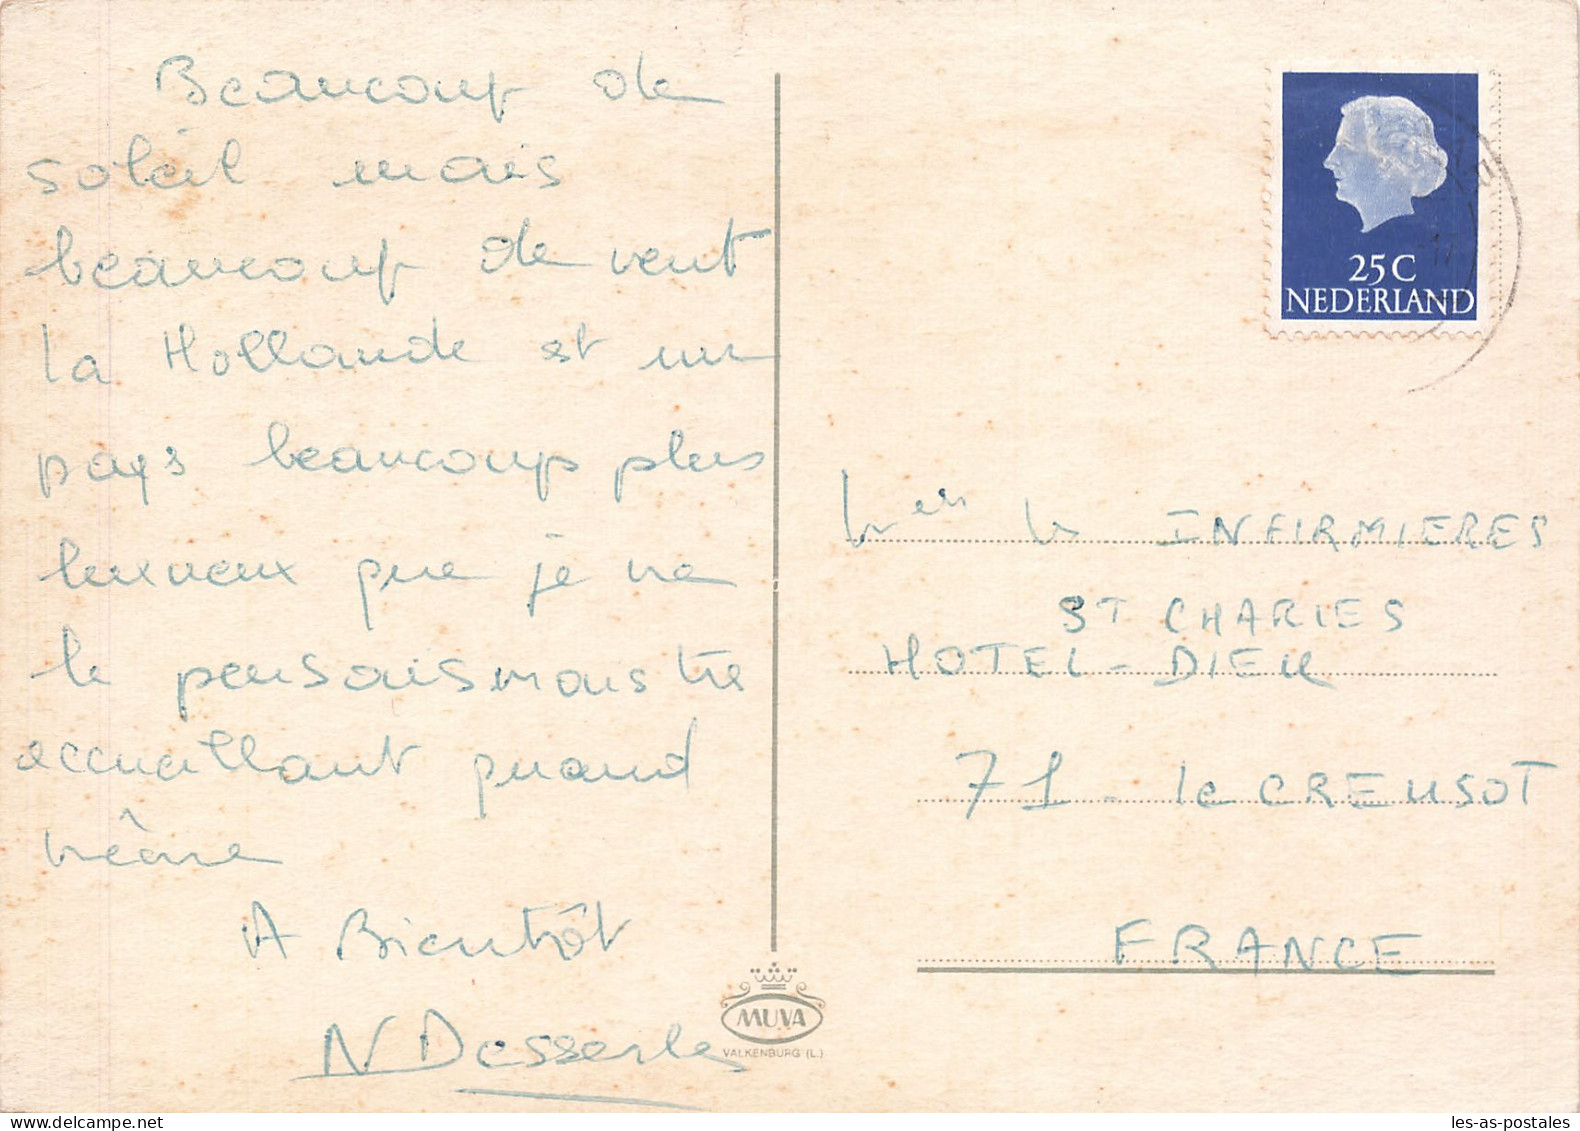 Beaucoup de
soleil mais
beaucoup de vent
la Hollande est un
pays beaucoup plus
luxueux que je ne
le pensais mais très
accueillant quand
même
A Bientôt
N Desserle
MUVA
VALKENBURG (L.)
25 C
NEDERLAND
les INFIRMIERES
ST CHARLES
HOTEL-DIEU
71 - le CREUSOT
FRANCE
les-as-postales